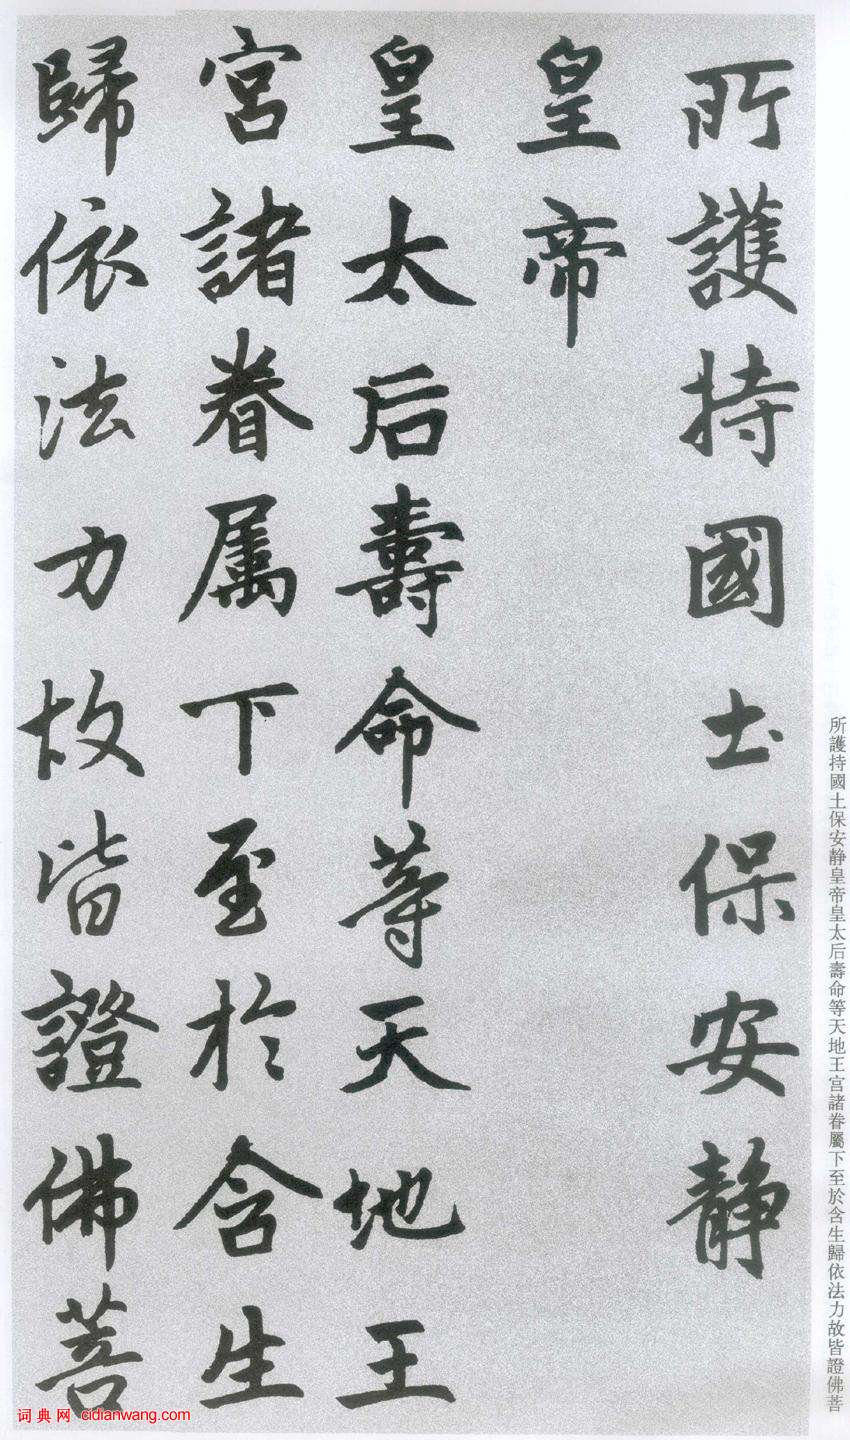 所護持國土保安静
皇帝
皇太后壽命等天地王
宮諸眷属下至於含生
歸依法力故皆證佛菩
所護持國土保安静皇帝皇太后壽命等天地王宫諸眷屬下至於含生歸依法力故皆證佛菩
词典网 cidianwang.com